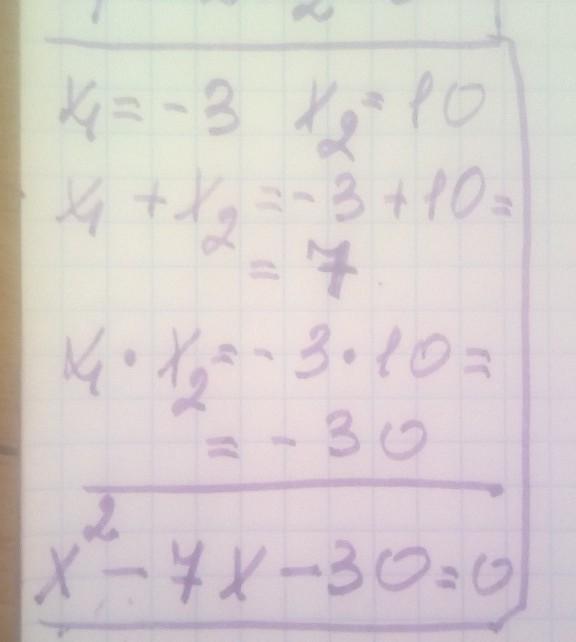 x₁ = -3 x₂ = 10
x₁ + x₂ = -3 + 10 =
= 7
x₁ · x₂ = -3 · 10 =
= -30
x² - 7x - 30 = 0